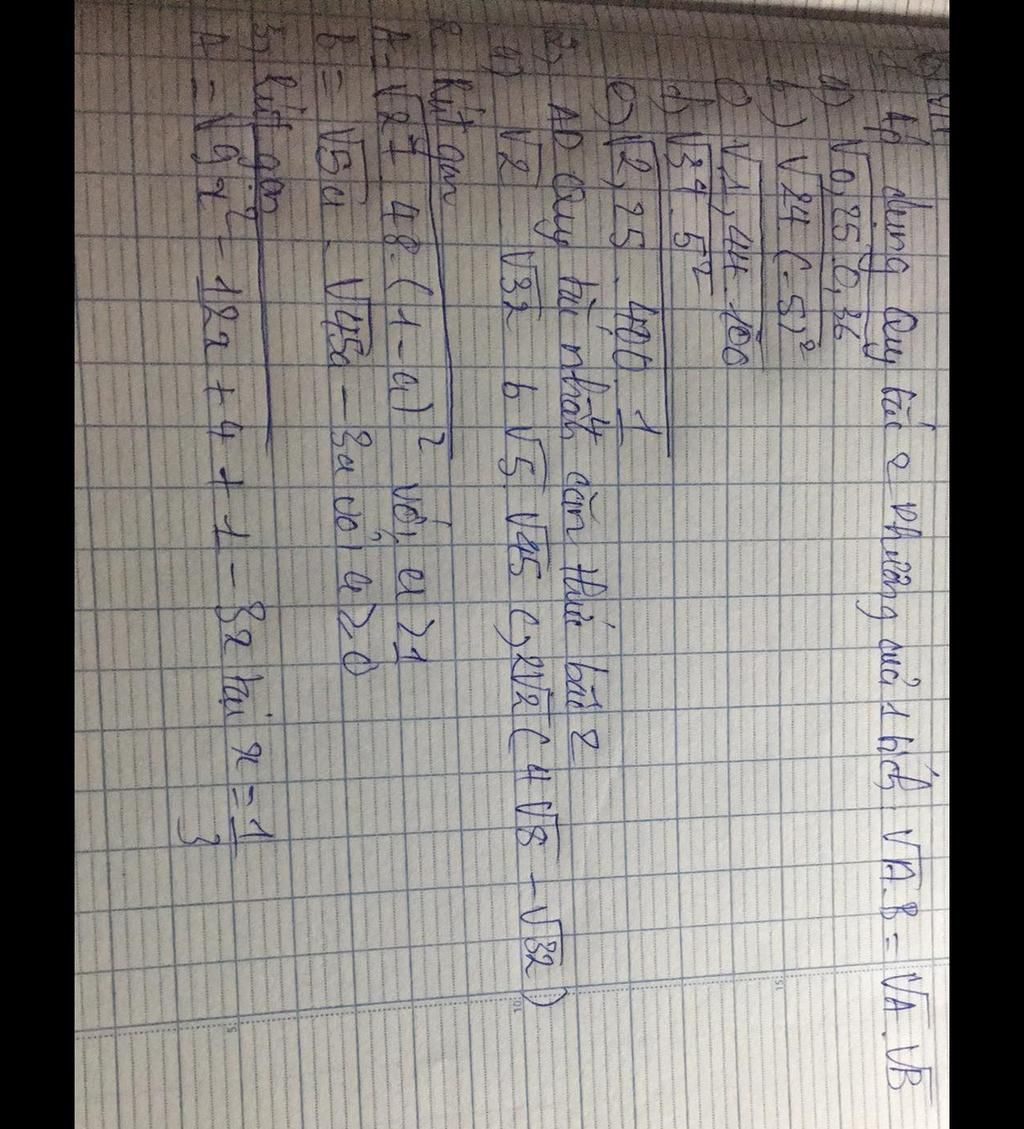 1. Áp dụng Quy tắc 2 phương của 1 tích √A.B = √A.√B
a) √0,25.0,36
b) √24.(-5)²
c) √1,44.100
d) √3⁴.5²
e) √2,25.400.1/4
2) AD Quy tắc nhân căn thức bậc 2
a) √2 √32 b √5.√45 c, 2√2(4√8 - √32)
2. Rút gọn
A = √27.48.(1-a)² với a > 1
b = √5a.√45a - 3a với a ≥ 0
3, Rút gọn
A = √9x² - 12x + 4 + 1 - 3x tại x = 1/3